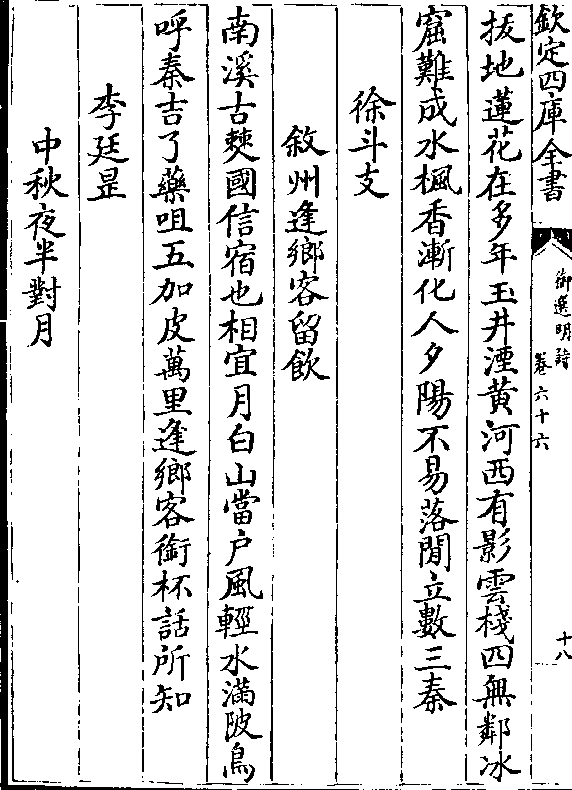 欽定四庫全書
御選明詩
卷六十六
十八
拔地蓮花在多年玉井湮黄河西有影雲棧四無鄰冰
窟難成水楓香漸化人夕陽不易落閒立數三秦
徐斗支
敘州逢鄉客留飲
南溪古僰國信宿也相宜月白山當户風輕水滿陂鳥
呼秦吉了藥咀五加皮萬里逢鄉客銜杯話所知
李廷昰
中秋夜半對月